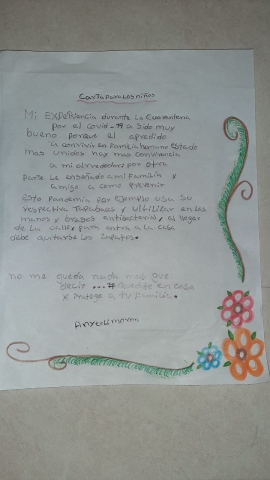 Carta para los niños
Mi Experiencia durante la Cuarentena
por el covid-19 a sido muy
bueno porque el apredido
a convivir en familia hemos estado
mas unidos hay mas convivencia
a mi alrededor por otra
parte le enseñado a mi familia y
amigo a como prevenir
esta Pandemia por ejemplo usa su
respectiva Tapabocas y utilizar en las
manos y brazos antibacterial, el llegar
de la calle y para entra a la casa
debe quitarse los zapatos.
no me queda nada mas que
decir ... # Quédate en casa
y protege a tu familia.